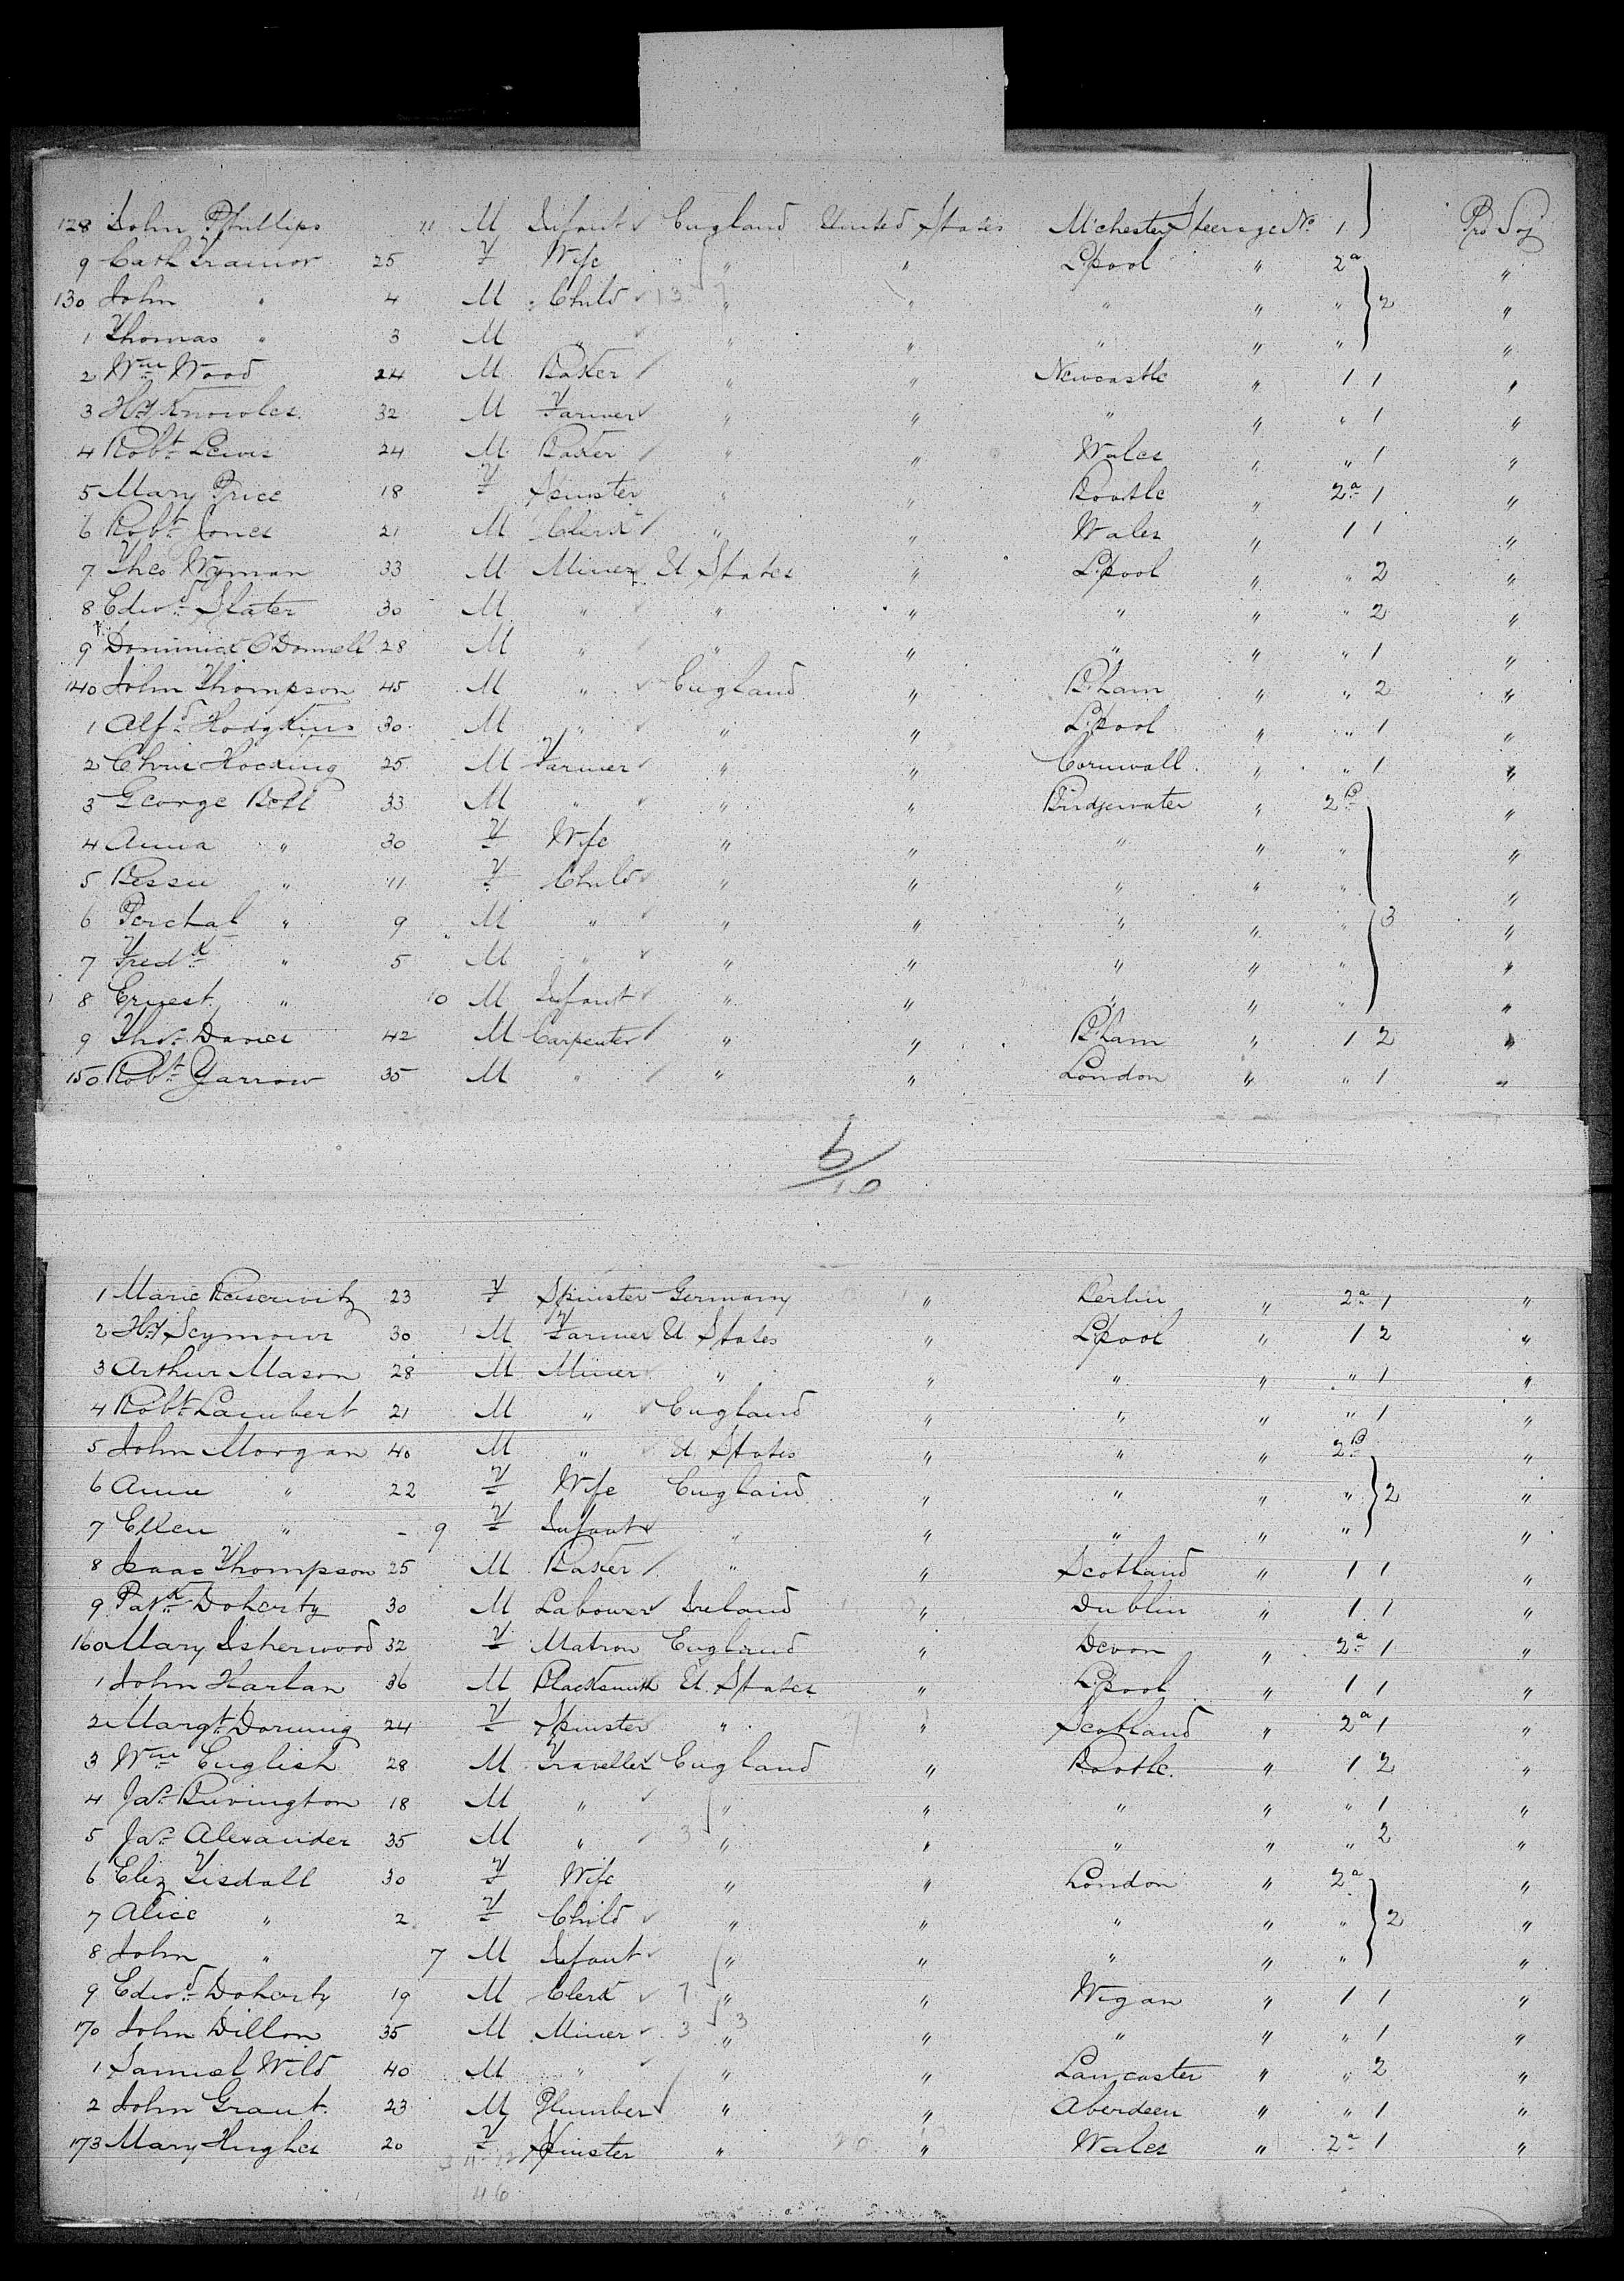 128 John Phillips 11 M Infant England United States M'chester Steerage No. 1 Pro Soj
9 Cath Trainor 25 F Wife " " L'pool " 2a "
130 John " 4 M Child " " " " " 2 "
1 Thomas " 3 M " " " " " " "
2 Wm Wood 24 M Baker " " Newcastle " 1 1 "
3 Hy Knowles 32 M Farmer " " " " " 1 "
4 Robt Lewis 24 M Baker " " Wales " " 1 "
5 Mary Price 18 F Spinster " " Bootle " 2a 1 "
6 Robt Jones 21 M Clerk " " Wales " 1 1 "
7 Theo Wyman 33 M Miner U. States " L'pool " " 2 "
8 Edwd Slater 30 M " " " " " " 2 "
9 Dominick O'Donnell 28 M " " " " " " 1 "
140 John Thompson 45 M " England " B'ham " " 2 "
1 Alfd Hodgkins 30 M " " " L'pool " " 1 "
2 Chris Hocking 25 M Farmer " " Cornwall " " 1 "
3 George Bell 33 M " " " Bridgewater " 2B "
4 Anna " 30 F Wife " " " " " "
5 Bessie " 11 F Child " " " " " "
6 Percival " 9 M " " " " " " 3 "
7 Fredk " 5 M " " " " " " "
8 Ernest " 10 M Infant " " " " " "
9 Thos. Davies 42 M Carpenter " " B'ham " 1 2 "
150 Robt Yarrow 35 M " " " London " " 1 "
1 Marie 23 F Spinster Germany " Berlin " 2a 1 "
2 Hy Seymour 30 M Farmer U States " L'pool " 1 2 "
3 Arthur Mason 28 M Miner " " " " " 1 "
4 Robt Lambert 21 M " England " " " " 1 "
5 John Morgan 40 M " U. States " " " 2B "
6 Annie " 22 F Wife England " " " " 2 "
7 Ellen " - 9 F Infant " " " " " "
8 Isaac Thompson 25 M Baker " " Scotland " 1 1 "
9 Patk Doherty 30 M Labourer Ireland " Dublin " 1 1 "
160 Mary Isherwood 32 F Matron England " Devon " 2a 1 "
1 John Harlan 36 M Blacksmith U. States " L'pool " 1 1 "
2 Margt Dorning 24 F Spinster " " Scotland " 2a 1 "
3 Wm English 28 M Traveller England " Bootle " 1 2 "
4 Jas. Rivington 18 M " " " " " " 1 "
5 Jas. Alexander 35 M " 3 " " " " " 2 "
6 Eliz Tisdall 30 F Wife " " London " 2a "
7 Alice " 2 F Child " " " " " 2 "
8 John " 7 M Infant " " " " " "
9 Edwd Doherty 19 M Clerk 7 " " Wigan " 1 1 "
170 John Dillon 35 M Miner 3 3 " " " " " 1 "
1 Samuel Wild 40 M " " " Lancaster " " 2 "
2 John Grant 23 M Plumber " " Aberdeen " " 1 "
173 Mary Hughes 20 F Spinster " " Wales " 2a 1 "
46